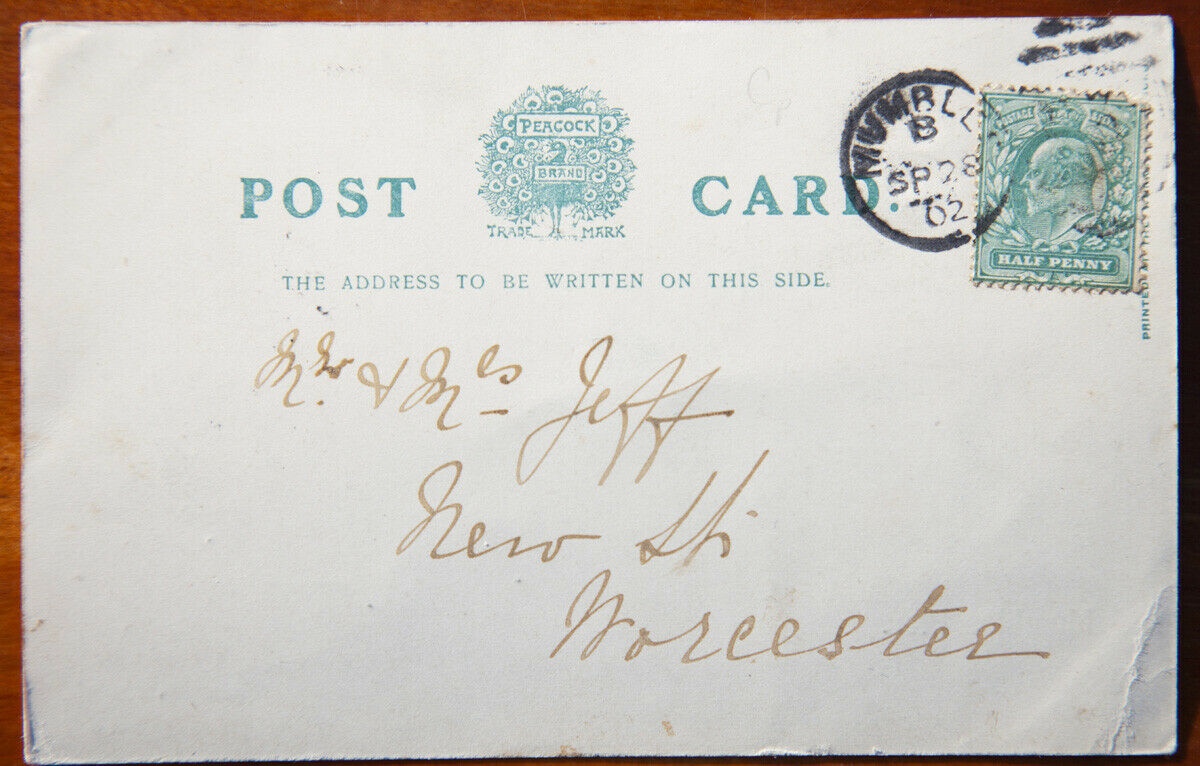 PEACOCK
BRAND
POST CARD.
TRADE MARK
THE ADDRESS TO BE WRITTEN ON THIS SIDE.
MUMBL
B
SP 28
02
HALF PENNY
PRINTED
Mr. & Mrs Jeff
New St.
Worcester